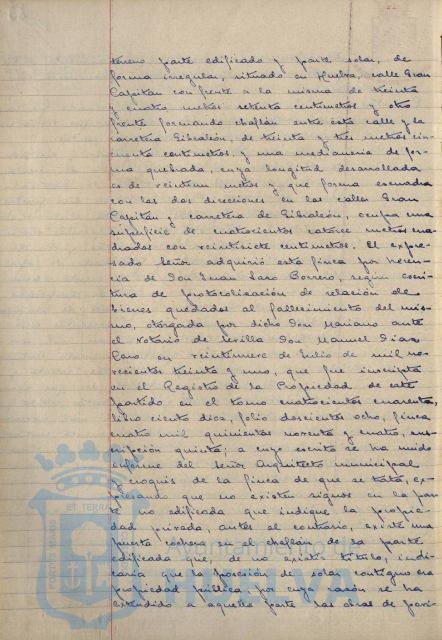 terreno parte edificado y parte solar, de
forma irregular, situado en Huelva, calle Gran
Capitán con frente a la misma de treinta
y cuatro metros setenta centímetros y otro
frente formando chaflán entre esta calle y la
carretera Gibraleón, de treinta y tres metros cin-
cuenta centímetros, y una medianería de for-
ma quebrada, cuya longitud desarrollada
es de veintiun metros y que forma escuadra
con las dos direcciones en las calles Gran
Capitán y carretera de Gibraleón, ocupa una
superficie de cuatrocientos catorce metros cua-
drados con veintisiete centímetros. El expre-
sado Señor adquirió esta finca por heren-
cia de Don Borrero, según escri-
tura de protocolización de relación de
bienes quedados al fallecimiento del mis-
mo, otorgada por dicho Don Mariano ante
el Notario de Sevilla Don Manuel Díaz
Caro en veintinueve de Julio de mil no-
vecientos treinta y uno, que fue inscripta
en el Registro de la Propiedad de este
partido en el tomo cuatrocientos cuarenta,
libro ciento diez, folio doscientos ocho, finca
cuatro mil quinientos noventa y cuatro, ins-
cripción quinta; a cuyo escrito se ha unido
informe del Señor Arquitecto municipal
y croquis de la finca de que se trata, ex-
presando que no existen signos en la par-
te no edificada que indique la propie-
dad privada, antes al contrario, existe una
puerta cochera en el chaflán de la parte
edificada que, de no existir título, indi-
caría que la porción de solar contiguo era
propiedad pública, por cuya razón se ha
extendido a aquella parte las obras de pavi-
Ayuntamiento de
HUELVA